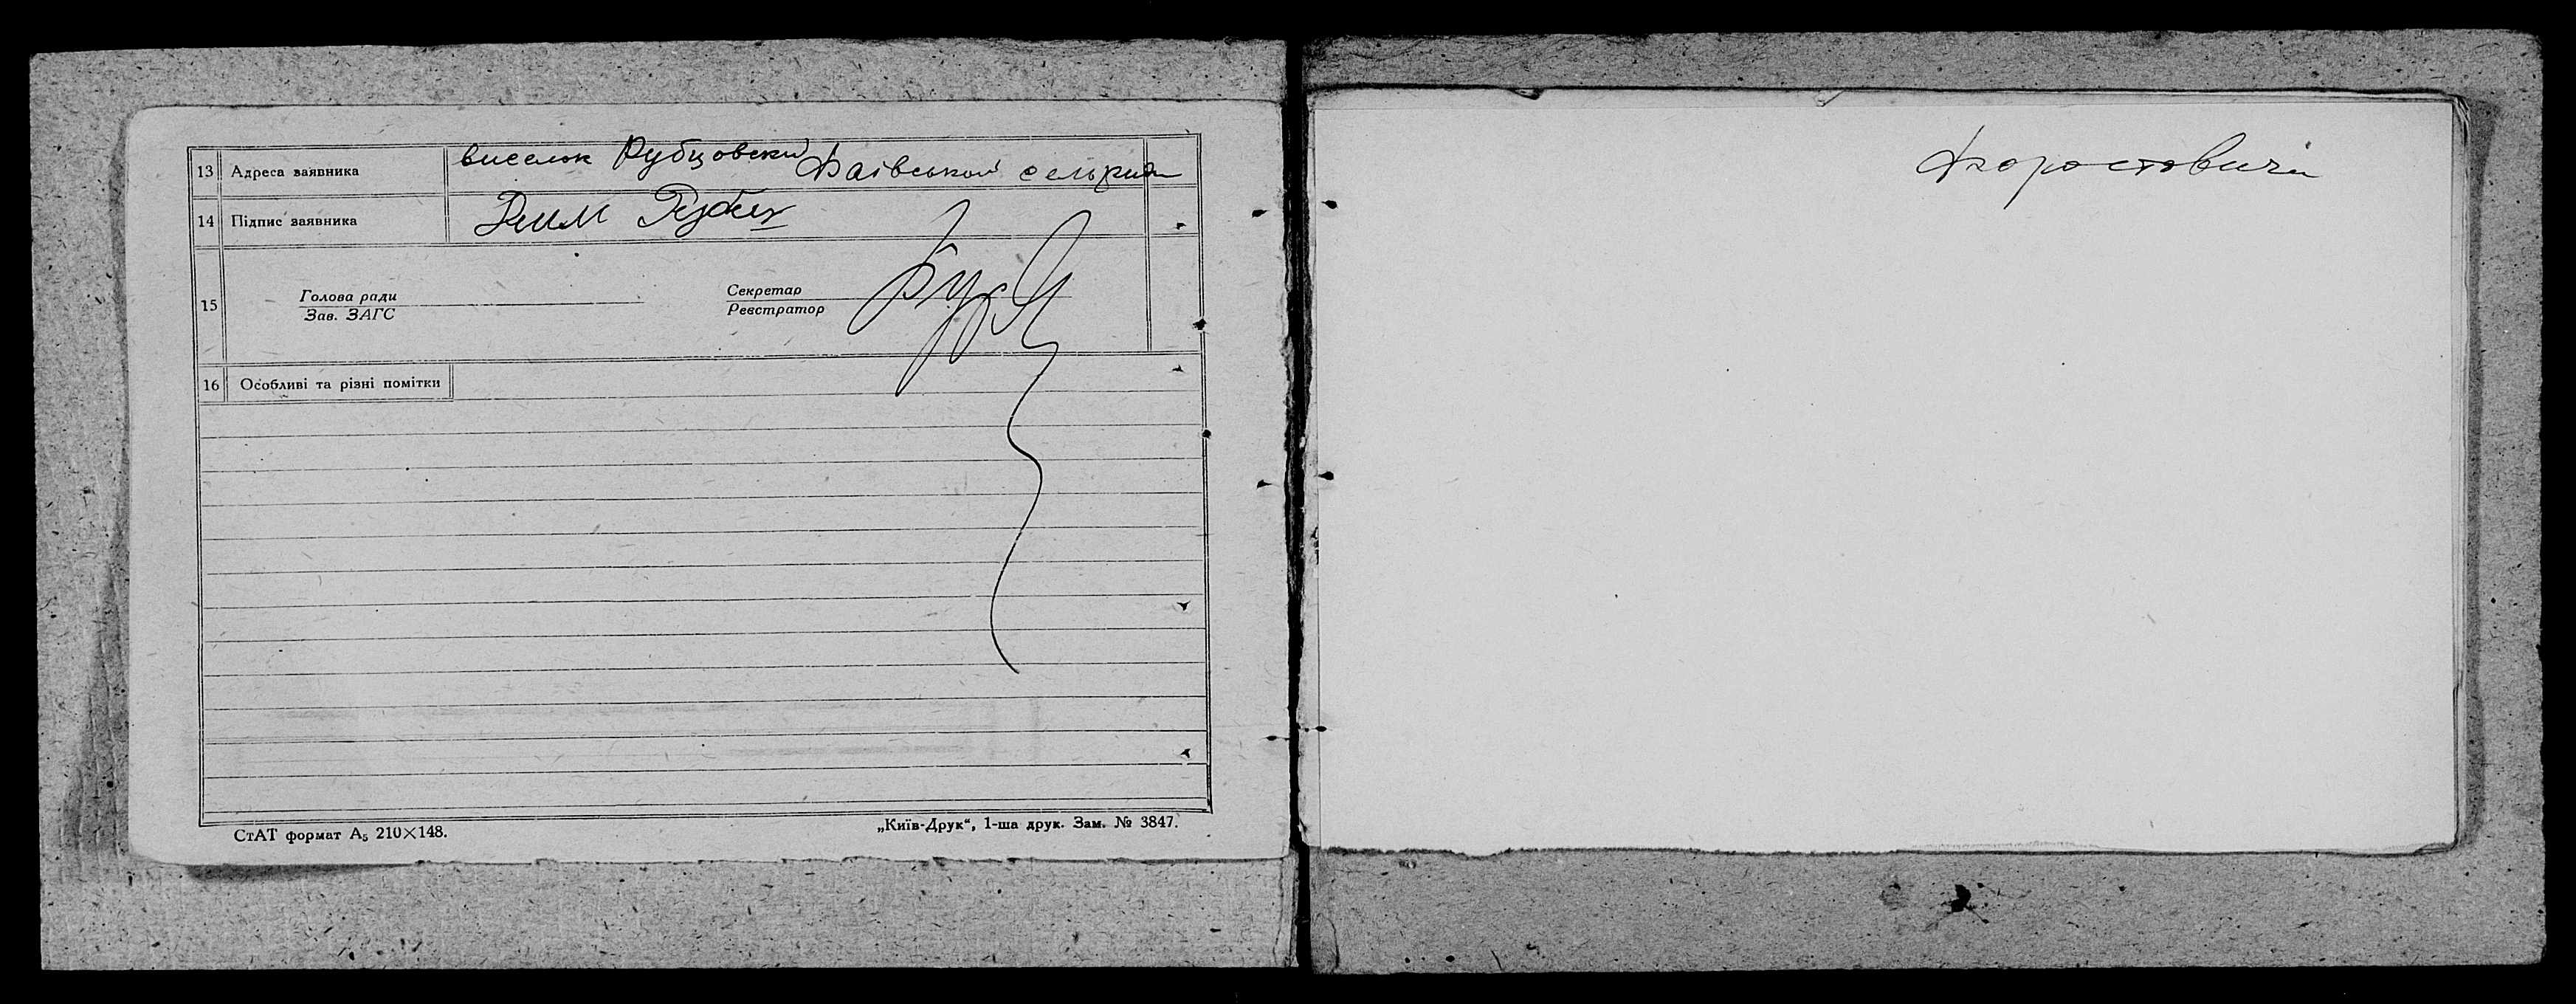 13 Адреса заявника виселок Рубцовский Баївської сельради
14 Підпис заявника
15 Голова ради Секретар
Зав. ЗАГС Реєстратор
16 Особливі та різні помітки
СтАТ формат А₅ 210×148. „Київ-Друк“, 1-ша друк. Зам. № 3847.